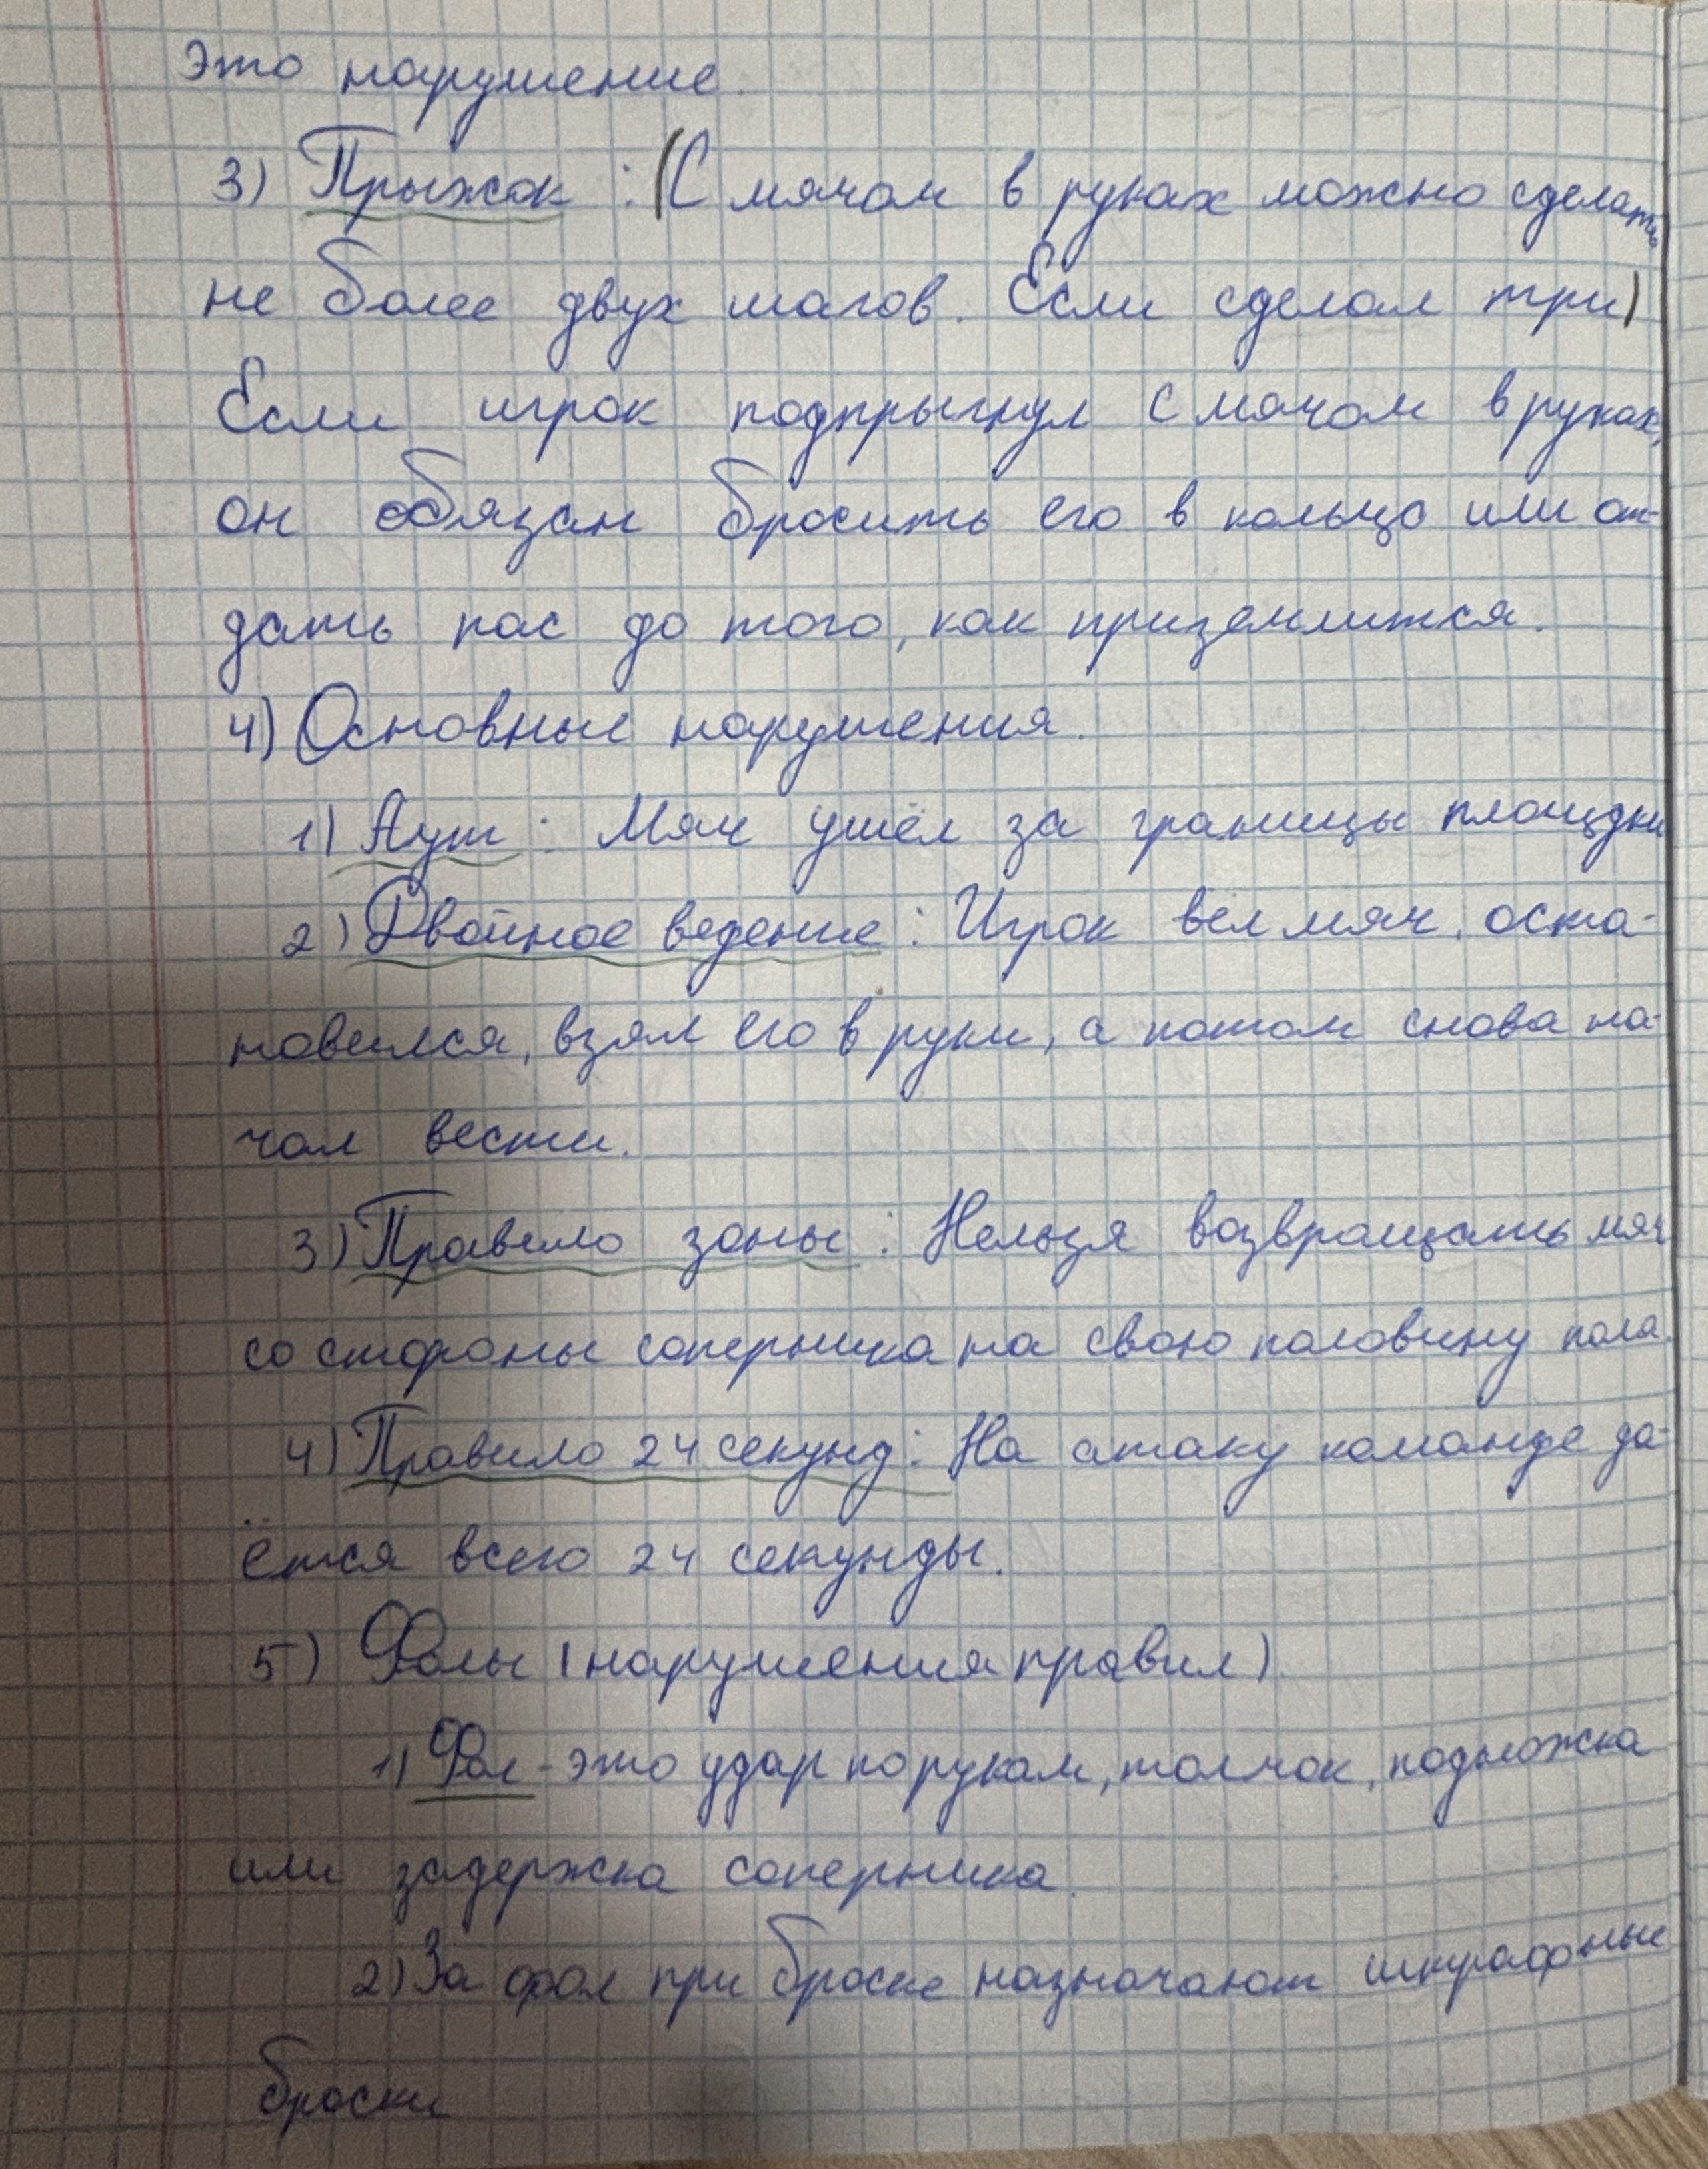 Это нарушение.
3) Прыжок : (С мячом в руках можно сделать
не более двух шагов. Если сделал три)
Если игрок подпрыгнул с мячом в руках,
он обязан бросить его в кольцо или от-
дать пас до того, как приземлится.
4) Основные нарушения.
1) Аут : Мяч ушёл за границы площдки
2) Двойное ведение : Игрок вёл мяч, оста-
новился, взял его в руки, а потом снова на-
чал вести.
3) Правило зоны : Нельзя возвращать мяч
со стороны соперника на свою половину поля.
4) Правило 24 секунд : На атаку команде да-
ётся всего 24 секунды.
5) Фолы (нарушения правил)
1) Фол - это удар по рукам, толчок, подножка
или задержка соперника.
2) За фол при броске назначают штрафные
броски